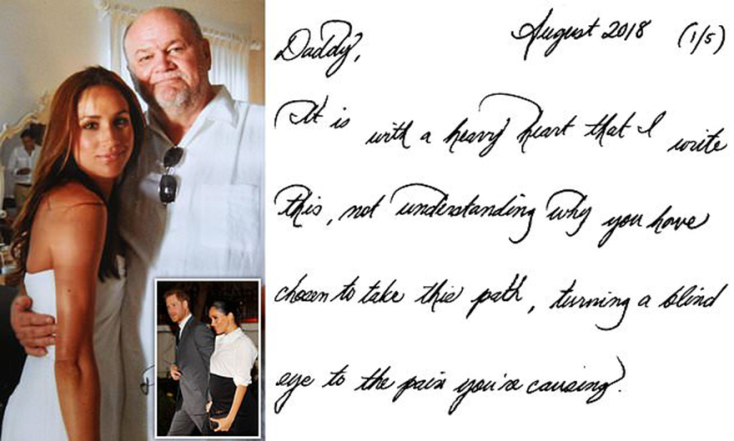 August 2018 (1/5)
Daddy,
It is with a heavy heart that I write
this, not understanding why you have
chosen to take this path, turning a blind
eye to the pain you're causing.